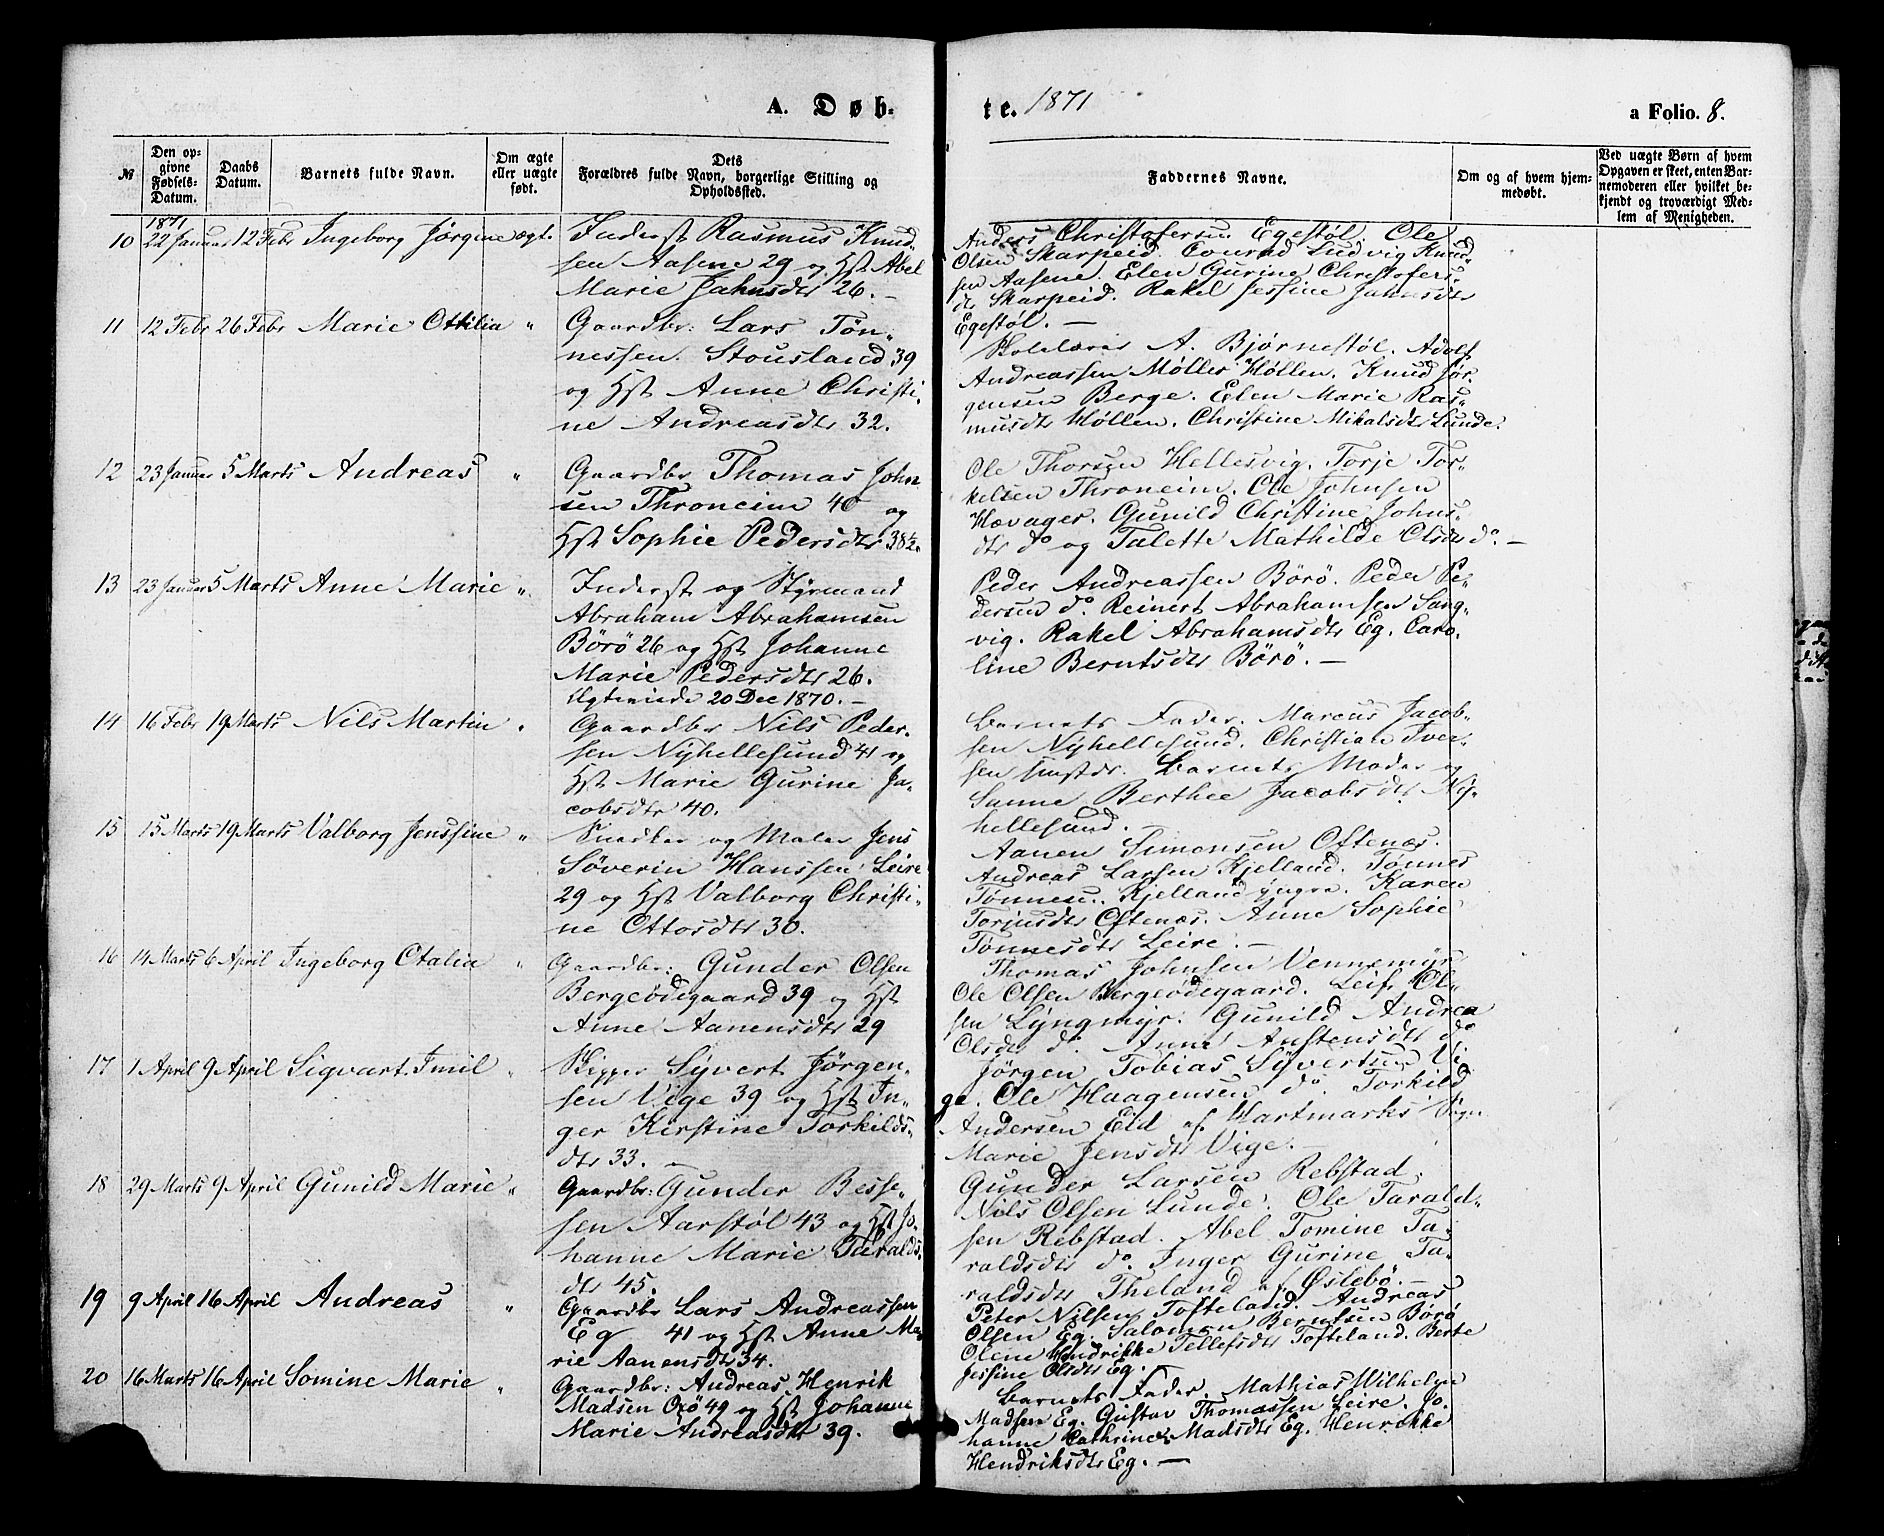 A. Døb-
te. 1871
a Folio. 8.
№
Den op-
givne
Fødsels-
Datum.
Daabs
Datum.
Barnets fulde Navn.
Om ægte
eller uægte
født.
Dets
Forældres fulde Navn, borgerlige Stilling og
Opholdssted.
Faddernes Navne.
Om og af hvem hjem-
medøbt.
Ved uægte Børn af hvem
Opgaven er skeet, enten Bar-
nemoderen eller hvilket be-
kjendt og troværdigt Med-
lem af Menigheden.
1871
10 22 Januar 12 Febr Ingeborg Jørgine ægt.
Inderst Rasmus Knud-
sen Aasene 29 og Hst Abel
Marie Jahnsdtr 26. —
Anders Christofersen Egestøl. Ole
Olsen Skarpeid. Conrad Ludvig Knud-
sen Aasene. Elen Gurine Christofers-
dtr Skarpeid. Rakel Jessine Jahnsdtr
Egestøl. —
11 12 Febr 26 Febr Marie Ottilia "
Gaardbr: Lars Tøn-
nessen. Stousland 39
og Hst Anne Christi-
ne Andreasdtr 32.
Skolelærer A. Bjørnestøl. Adolf
Andreassen Møller Høllen. Knud Jør-
gensen Berge. Elen Marie Ras-
musdtr Høllen. Christine Mikalsdtr Lunde.
12 23 Januar 5 Marts Andreas "
Gaardbr Thomas John-
sen Throneim 40 og
Hst Sophie Pedersdtr 38½.
Ole Thorsen Hellesvig. Torje Tor-
kelsen Throneim. Ole Johnsen
Hævager. Gunild Christine Johns-
dtr do og Talette Mathilde Olsdtr do. —
13 23 Januar 5 Marts Anne Marie "
Inderst og Styrmand
Abraham Abrahamsen
Börö 26 og Hst Johanne
Marie Pedersdtr 26.
Ægteviede 20 Dec 1870. —
Peder Andreassen Börö. Peder Pe-
dersen do. Reinert Abrahamsen Sang-
vig. Rakel Abrahamsdtr Eg. Caro-
line Berntsdtr Börö. —
14 16 Febr 19 Marts Nils Martin "
Gaardbr Nils Peder-
sen Nyhellesund 41 og
Hst Marie Gurine Ja-
cobsdtr 40.
Barnets Fader. Marcus Jacob-
sen Nyhellesund. Christian Iver-
sen. Barnets Moder og
Sanne Berthee Jacobsdtr Ny-
hellesund.
15 15 Marts 19 Marts Valborg Jenssine "
Snedker og Maler Jens
Söverin Hanssen Leire
29 og Hst Valborg Christi-
ne Ottosdtr 30.
Aanen Simonsen Oftenæs.
Andreas Larsen Kjelland. Tönnes
Tønnesen Kjelland yngre. Karen
Torjusdtr Oftenæs. Anne Sophie
Tønnesdtr Leire. —
16 14 Marts 6 April Ingeborg Otalia "
Gaardbr: Gunder Olsen
Bergeødegaard 39 og Hst
Anne Aanensdtr 29
Thomas Johnsen Vennemyr
Ole Olsen Bergeødegaard. Leif Ol-
sen Lyngmyr. Gunild Andrea
Olsdtr do. Anne Austensdtr do
17 1 April 9 April Sigvart Imil "
Skipper Syvert Jørgen-
sen Vige 39 og Hst In-
ger Kirstine Torkilds-
dtr 33. —
Jørgen Tobias Syvertsen Vi-
ge. Ole Haagensen do. Torkild
Andersen Eid af Hartmarks Sogn
Marie Jensdtr Vige. —
18 29 Marts 9 April Gunild Marie "
Gaardbr: Gunder Besse-
sen Aarstøl 43 og Hst Jo-
hanne Marie Taralds-
dtr 45.
Gunder Larsen Rebstad.
Nils Olsen Lunde. Ole Tarald-
sen Rebstad. Abel Tomine Ta-
raldsdtr do. Inger Gurine Ta-
raldsdtr Theland af Øslebö. —
19 9 April 16 April Andreas "
Gaardbr Lars Andreassen
Eg 41 og Hst Anne Ma-
rie Aanensdtr 34.
Peter Nilsen Tofteland. Andreas
Olsen Eg. Salomon Berntsen Börö
Olene Hendrikke Tellefsdtr Tofteland. Berte
Jessine Olsdtr Eg. —
20 16 Marts 16 April Somine Marie "
Gaardbr: Andreas Henrik
Madsen Oxö 49 og Hst Johanne
Marie Andreasdtr 39.
Barnets Fader. Mathias Wilhelm
Madsen Eg. Gustav Thomassen Leire. Jo-
hanne Cathrine Madsdtr Eg. Henrikke
Hendriksdtr Eg. —